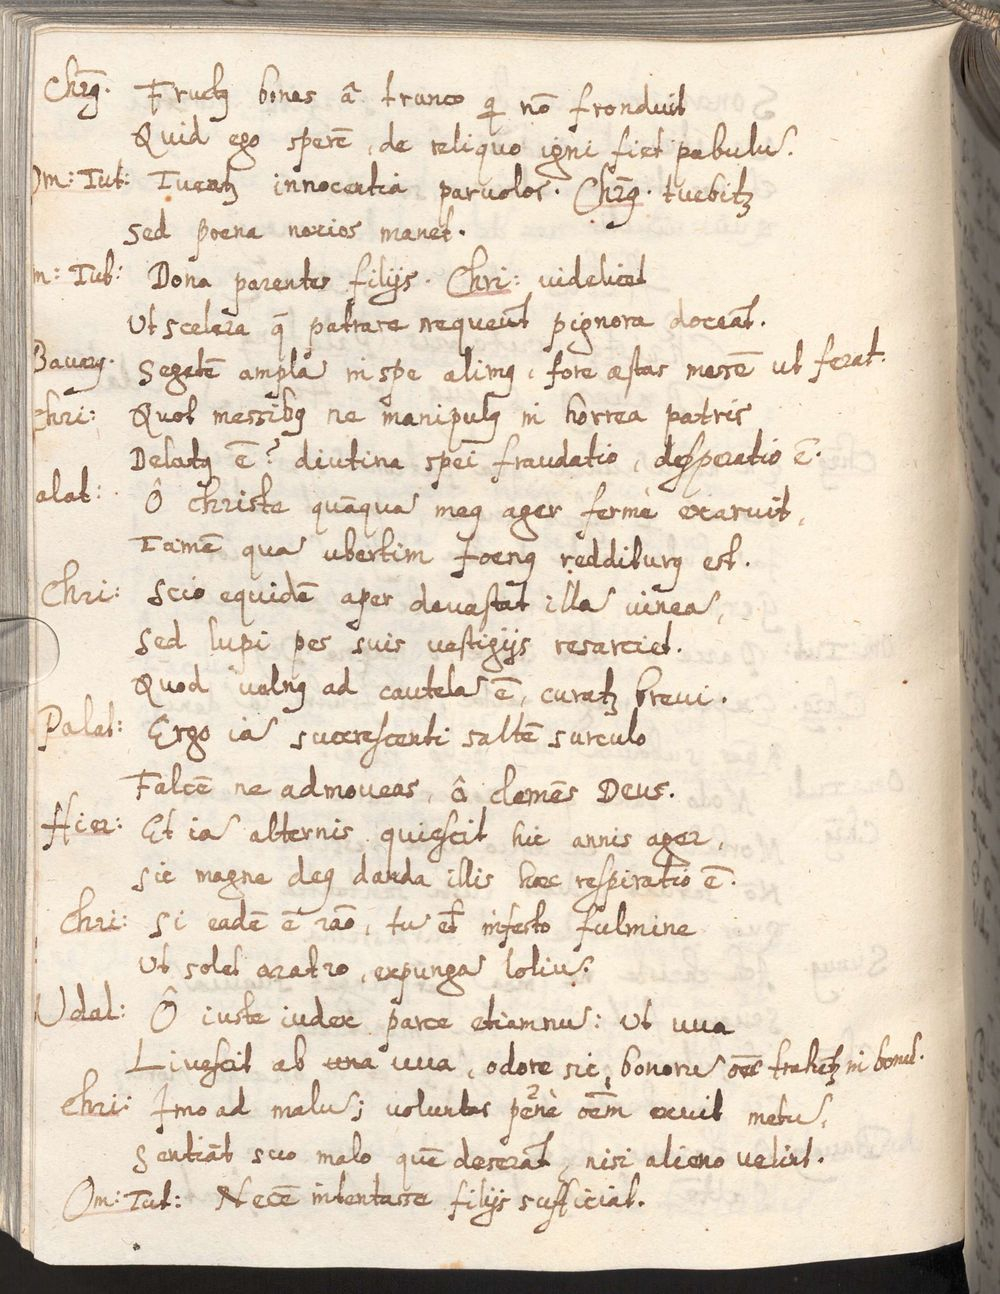 Chr̃9. Fruct9 bones â trunco q̃ nō fronduit
Quid ego sperē, de reliquo igni fiet pabulũ.
Om: Tut: Tueatz innocentia parvolos. Chr̃9. tuebitz
sed poena noxios manet.
m: Tut: Dona parentes filijs. Chri: videlicet
Ut scelera q̄ patrare nequeūt pignora doceāt.
Bavar9. Segetē amplã in spe alim9, fore æstas messē ut ferat.
Chri: Quot messib9 ne manipul9 in horrea patris
Delat9 ē? diutina spei fraudatio, desperatio ē.
alat: Ô christe quāquã me9 ager fermè exaruit,
Tamē quã ubertim foen9 redditur9 est.
Chri: Scio equidē aper devastat illã vineã,
Sed lupi pes suis vestigijs resarciet.
Quod uuln9 ad cautelã ē, curatz brevi.
Palat: Ergo iã succrescenti saltē surculo
Falcē ne admoveas, ô clemēs Deus.
Hier: Et iã alternis quiescit hic annis ager,
sic magne de9 danda illis hæc respiratio ē.
Chri: Si eadē ē rão, tũ et infesto fulmine
Ut solet aratro, expungã loliũ.
Udal: Ô iuste iudex parce etiamnũ: ut uua
Livescit ab una uua, odore sic bonorũ oēs trahētz in bonũ.
Chri: Imo ad malũ; voluntas penè oēm exuit metũ,
Sentiāt suo malo quē deserāt, nisi alieno velint.
Om: Tut: Necē intentasse filijs sufficiat.